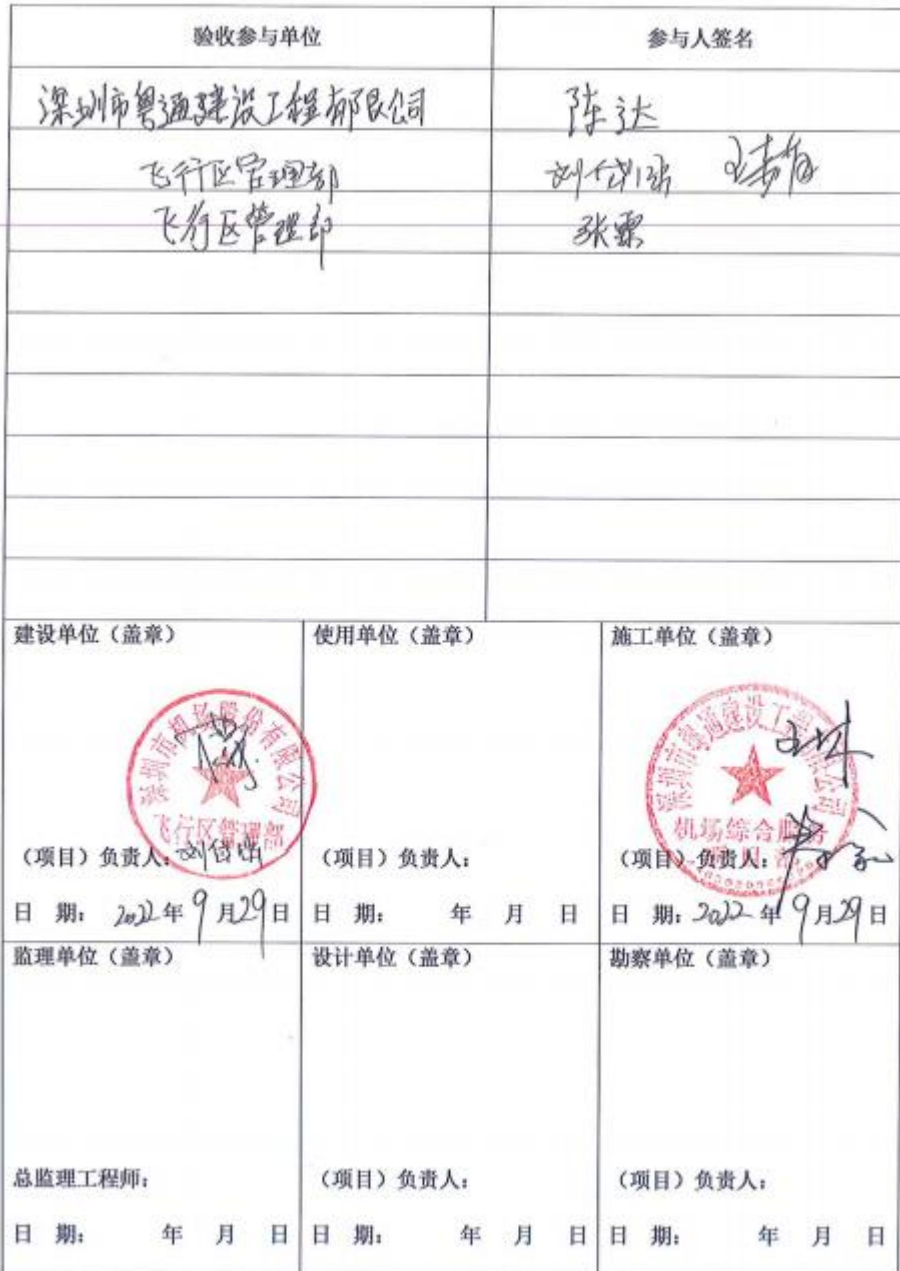 验收参与单位 参与人签名
深圳市粤通建设工程有限公司 陈达
飞行区管理部
飞行区管理部 张霖
建设单位（盖章） 使用单位（盖章） 施工单位（盖章）
深圳市机场股份有限公司 深圳市粤通建设工程有限公司
飞行区管理部 机场综合服务
（项目）负责人： （项目）负责人： （项目）负责人：
日 期： 2022年9月29日 日 期： 年 月 日 日 期：2022年9月29日
监理单位（盖章） 设计单位（盖章） 勘察单位（盖章）
总监理工程师： （项目）负责人： （项目）负责人：
日 期： 年 月 日 日 期： 年 月 日 日 期： 年 月 日